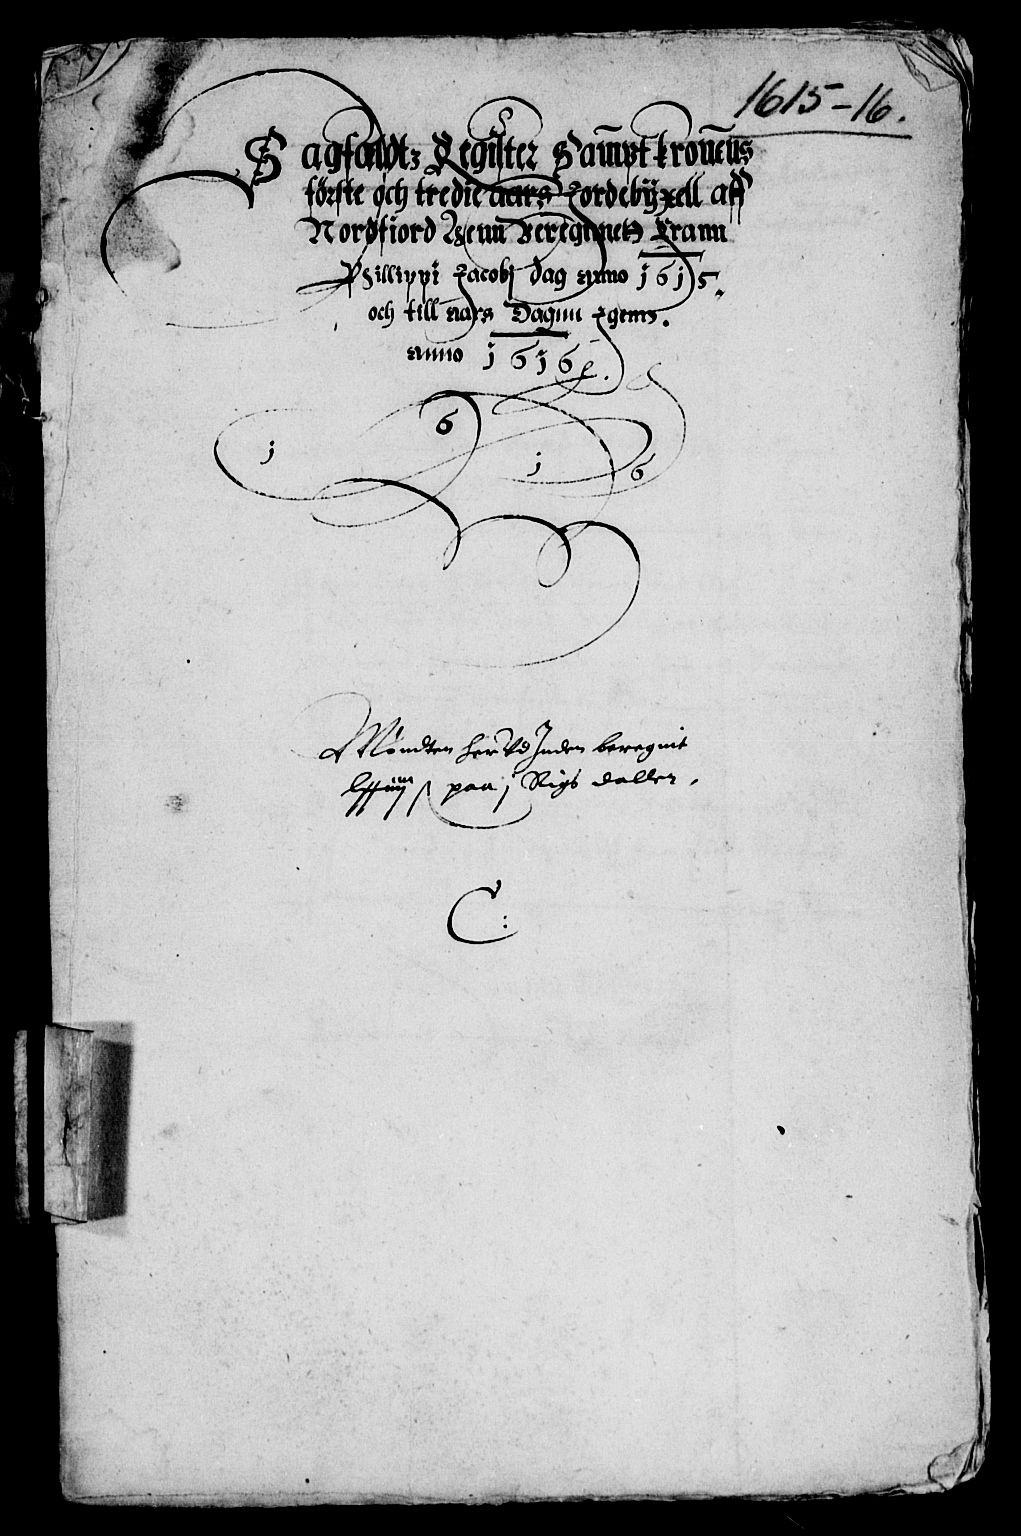 1615-16.
Sagfaldtz Register Sampt kronens
förste och tredie aars Jordebÿxell aff
Nordfiord Lenn Beregnett Frann
Phillippi Jacobj dag anno 1615.
och till aars Dagenn Igenn.
anno 1616.
1 6 1 6
Möndten her Vd Inden beregnit
paa j Rigs daller.
C: